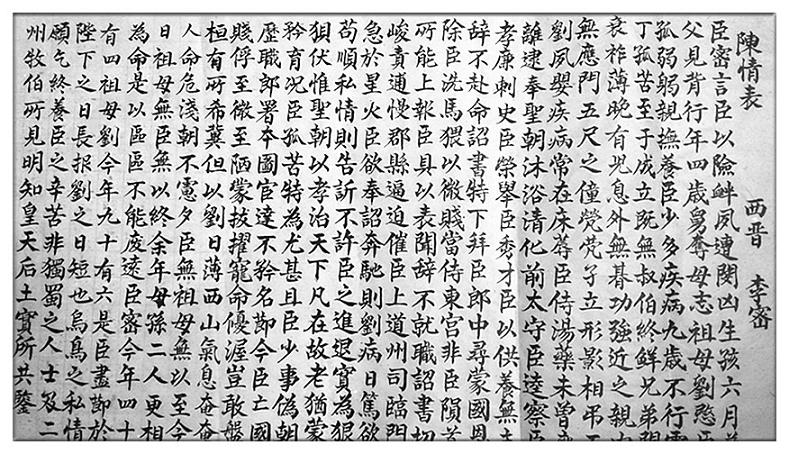 陳情表 西晉 李密
臣密言臣以險釁夙遭閔凶生孩六月
父見背行年四歲舅奪母志祖母劉愍臣
孤弱躬親撫養臣少多疾病九歲不行零
丁孤苦至于成立既無叔伯終鮮兄弟門
衰祚薄晚有兒息外無朞功強近之親內
無應門五尺之僮煢煢孑立形影相弔
劉夙嬰疾病常在床蓐臣侍湯藥未曾
離逮奉聖朝沐浴清化前太守臣逵察臣
孝廉刺史臣榮舉臣秀才臣以供養無
辭不赴命詔書特下拜臣郎中尋蒙國恩
除臣洗馬猥以微賤當侍東宮非臣隕
所能上報臣具以表聞辭不就職詔書切
峻責逋慢郡縣逼迫催臣上道州司臨門
急於星火臣欲奉詔奔馳則劉病日篤欲
苟順私情則告訴不許臣之進退實為狼
狽伏惟聖朝以孝治天下凡在故老猶蒙
矜育況臣孤苦特為尤甚且臣少事偽朝
歷職郎署夲圖宦達不矜名節今臣亡國
賤俘至微至陋蒙拔擢寵命優渥豈敢盤
桓有所希冀但以劉日薄西山氣息奄奄
人命危淺朝不慮夕臣無祖母無以至今
日祖母無臣無以終余年母孫二人更相
為命是以區區不能廢遠臣密今年四十
有四祖母劉今年九十有六是臣盡節於
陛下之日長报劉之日短也烏鳥之私情
願乞終養臣之辛苦非獨蜀之人士及二
州牧伯所見明知皇天后土實所共鑒